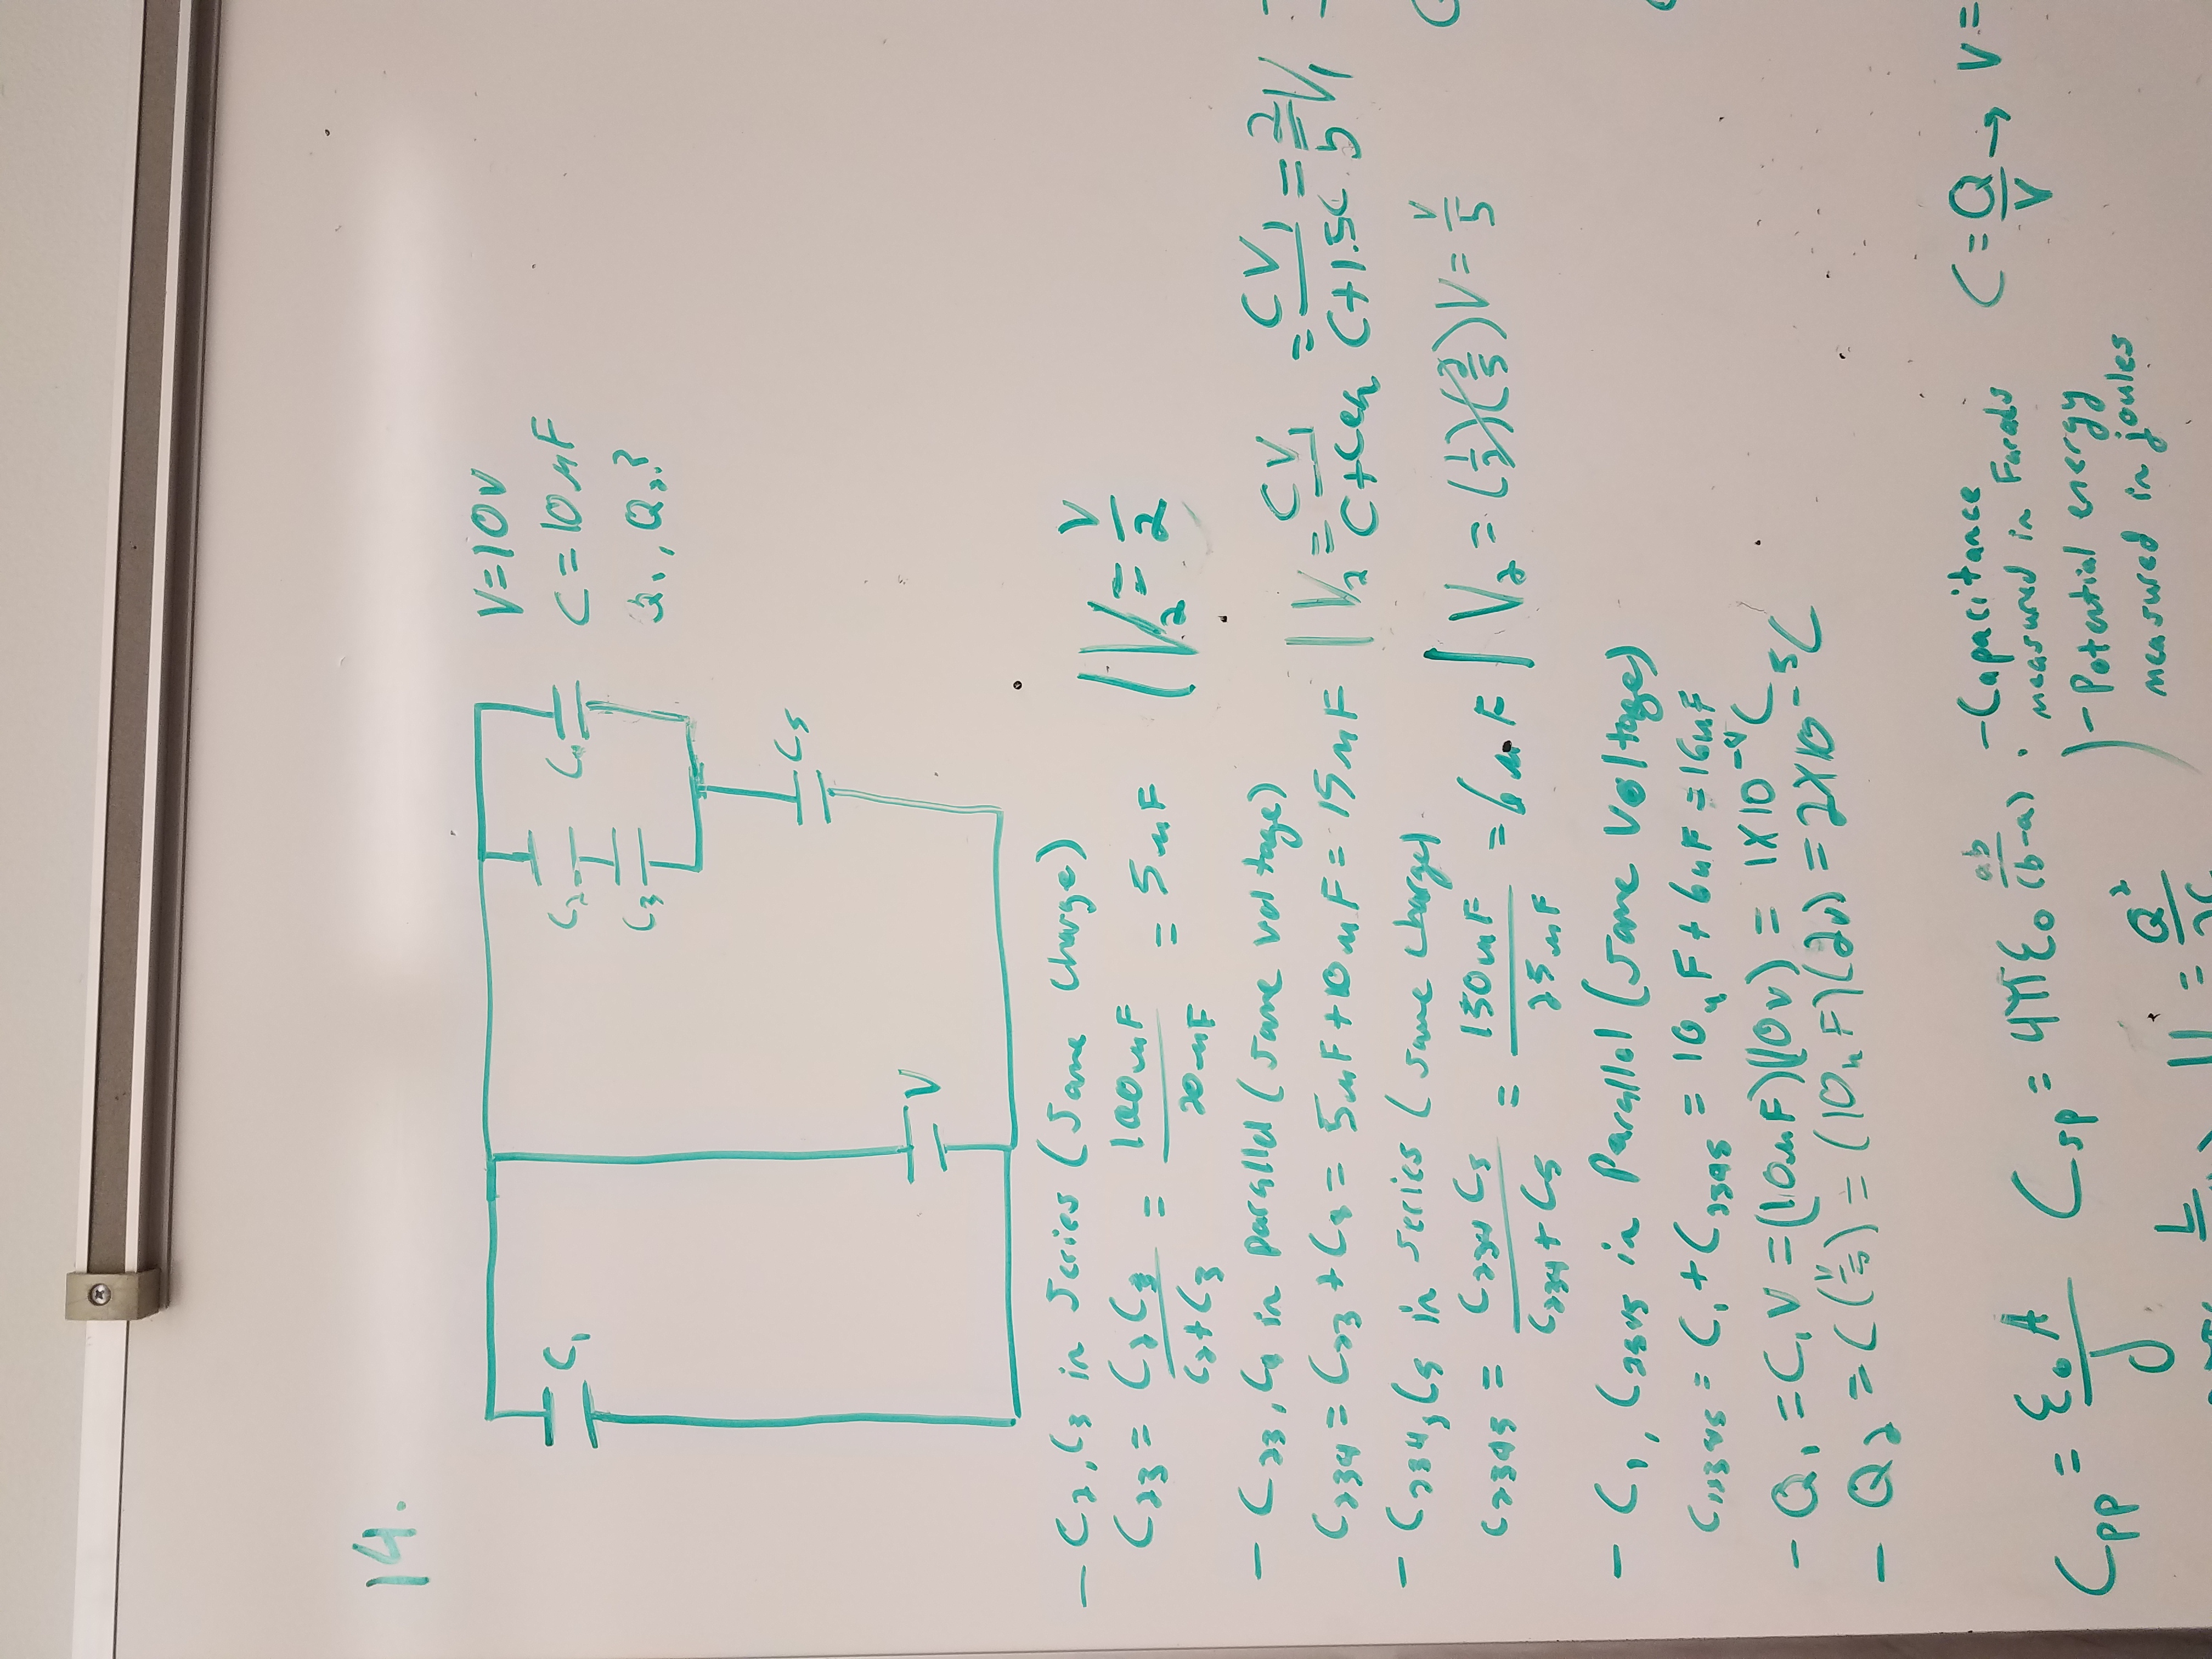 14.
V=10V
C=10μF
Q₁, Q₂?
C₁
C₂
C₄
C₃
C₅
V
- C₂, C₃ in Series (Same Charge)
C₂₃ = C₂C₃/(C₂+C₃) = 100μF/20μF = 5μF | V₂ = V/2
- C₂₃, C₄ in Parallel (Same voltage)
C₂₃₄ = C₂₃ + C₄ = 5μF+10μF = 15μF | V₂ = CV₁/(C+Ceq) = CV₁/(C+1.5C) = 2/5 V₁
- C₂₃₄, C₅ in series (same charge)
C₂₃₄₅ = C₂₃₄C₅/(C₂₃₄+C₅) = 150μF/25μF = 6μF | V₂ = (1/2)(2/5)V = V/5
- C₁, C₂₃₄₅ in Parallel (Same Voltage)
C₁₂₃₄₅ = C₁ + C₂₃₄₅ = 10μF + 6μF = 16μF
- Q₁ = C₁V = (10μF)(10V) = 1X10⁻⁴C
- Q₂ = C(V/5) = (10μF)(2V) = 2X10⁻⁵C
Cpp = ε₀A/d Csp = 4πε₀ ab/(b-a) . -Capacitance measured in Farads C = Q/V → V=
-Potential energy measured in joules
L U = Q²/2C